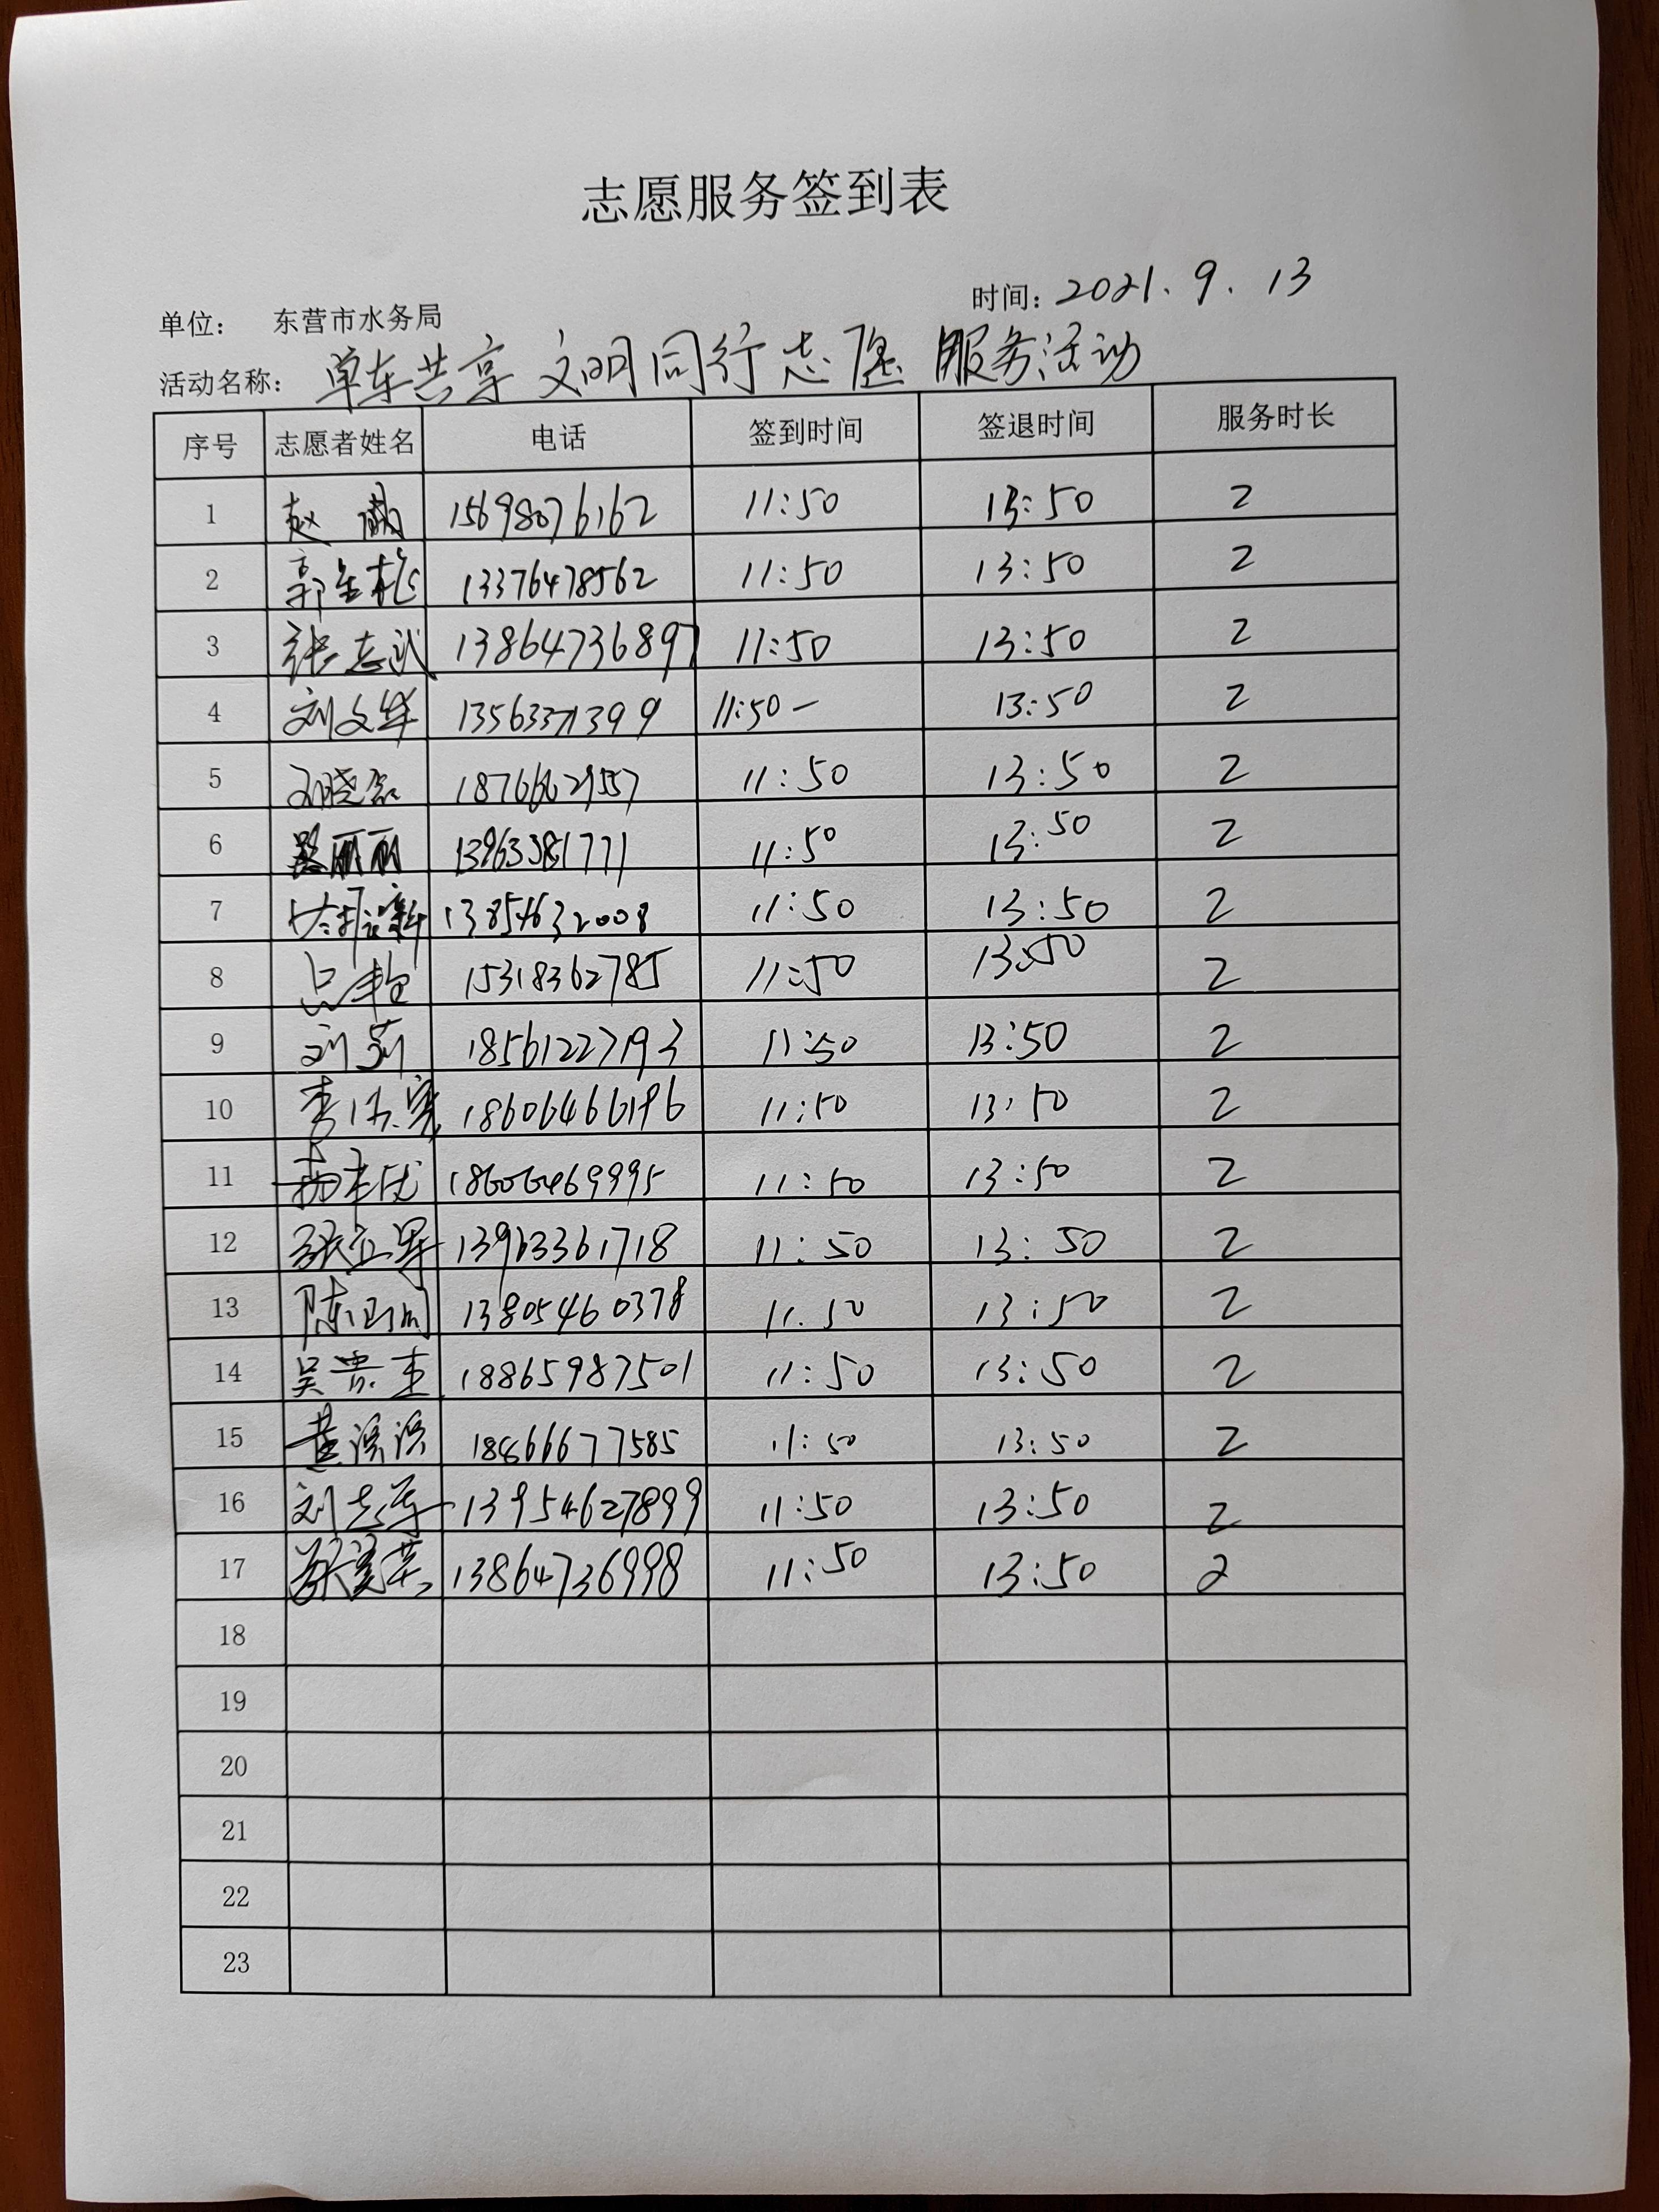 志愿服务签到表
单位： 东营市水务局 时间：2021.9.13
活动名称：单车共享 文明同行志愿服务活动
序号 志愿者姓名 电话 签到时间 签退时间 服务时长
1 赵 15698076162 11:50 13:50 2
2 郭 13376478562 11:50 13:50 2
3 张志武 13864736897 11:50 13:50 2
4 刘文华 13563371399 11:50- 13:50 2
5 11:50 13:50 2
6 丽丽 13963381771 11:50 13:50 2
7 13854632008 11:50 13:50 2
8 吕 15318362785 11:50 13:50 2
9 刘莉 18561227193 11:50 13:50 2
10 李 18606466196 11:50 13:50 2
11 18606469995 11:50 13:50 2
12 张立军 13963361718 11:50 13:50 2
13 陈 13805460378 11.50 13:50 2
14 吴贵杰 18865987501 11:50 13:50 2
15 黄滨滨 18466677585 11:50 13:50 2
16 刘志军 13954627899 11:50 13:50 2
17 13864736998 11:50 13:50 2
18
19
20
21
22
23